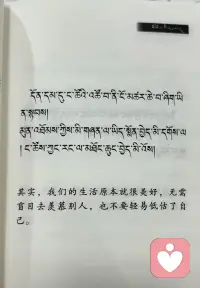 དོན་དམ་དུ་ང་ཚོའི་འཚོ་བ་ནི་ངོ་མཚར་ཆེ་བ་ཞིག་ཡི
ན་སྟབས།
མུན་འཐོམས་ཀྱིས་མི་གཞན་ལ་ཡིད་སྨོན་བྱེད་མི་དགོས་ལ
། ང་ཚོས་ཀྱང་རང་ལ་མཐོང་ཆུང་བྱེད་མི་འོས།
其实，我们的生活原本就很美好，无需
盲目去羡慕别人，也不要轻易低估了自
己。